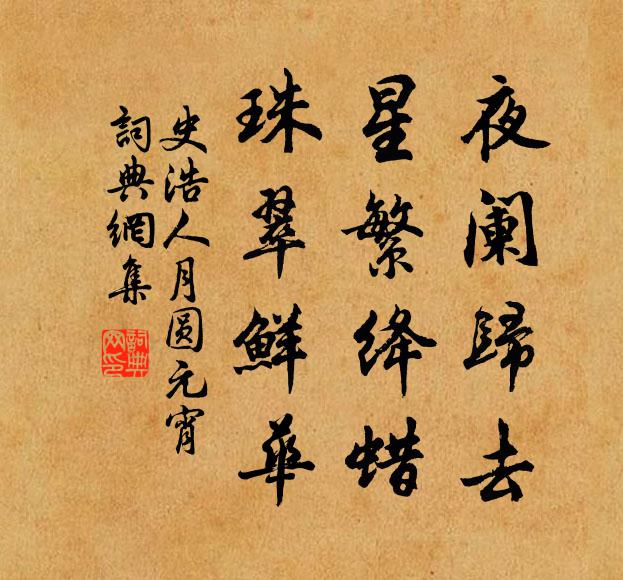 夜阑歸去
星繁绛蜡
珠翠鮮華
史浩人月圆元宵
詞典網集
詞典网印